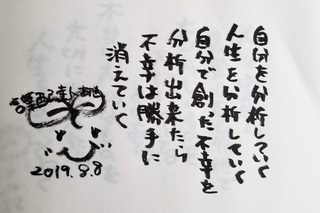 自分を分析していく
人生を分析していく
自分で創った不幸を
分析出来たら
不幸は勝手に
消えていく
2019.8.8